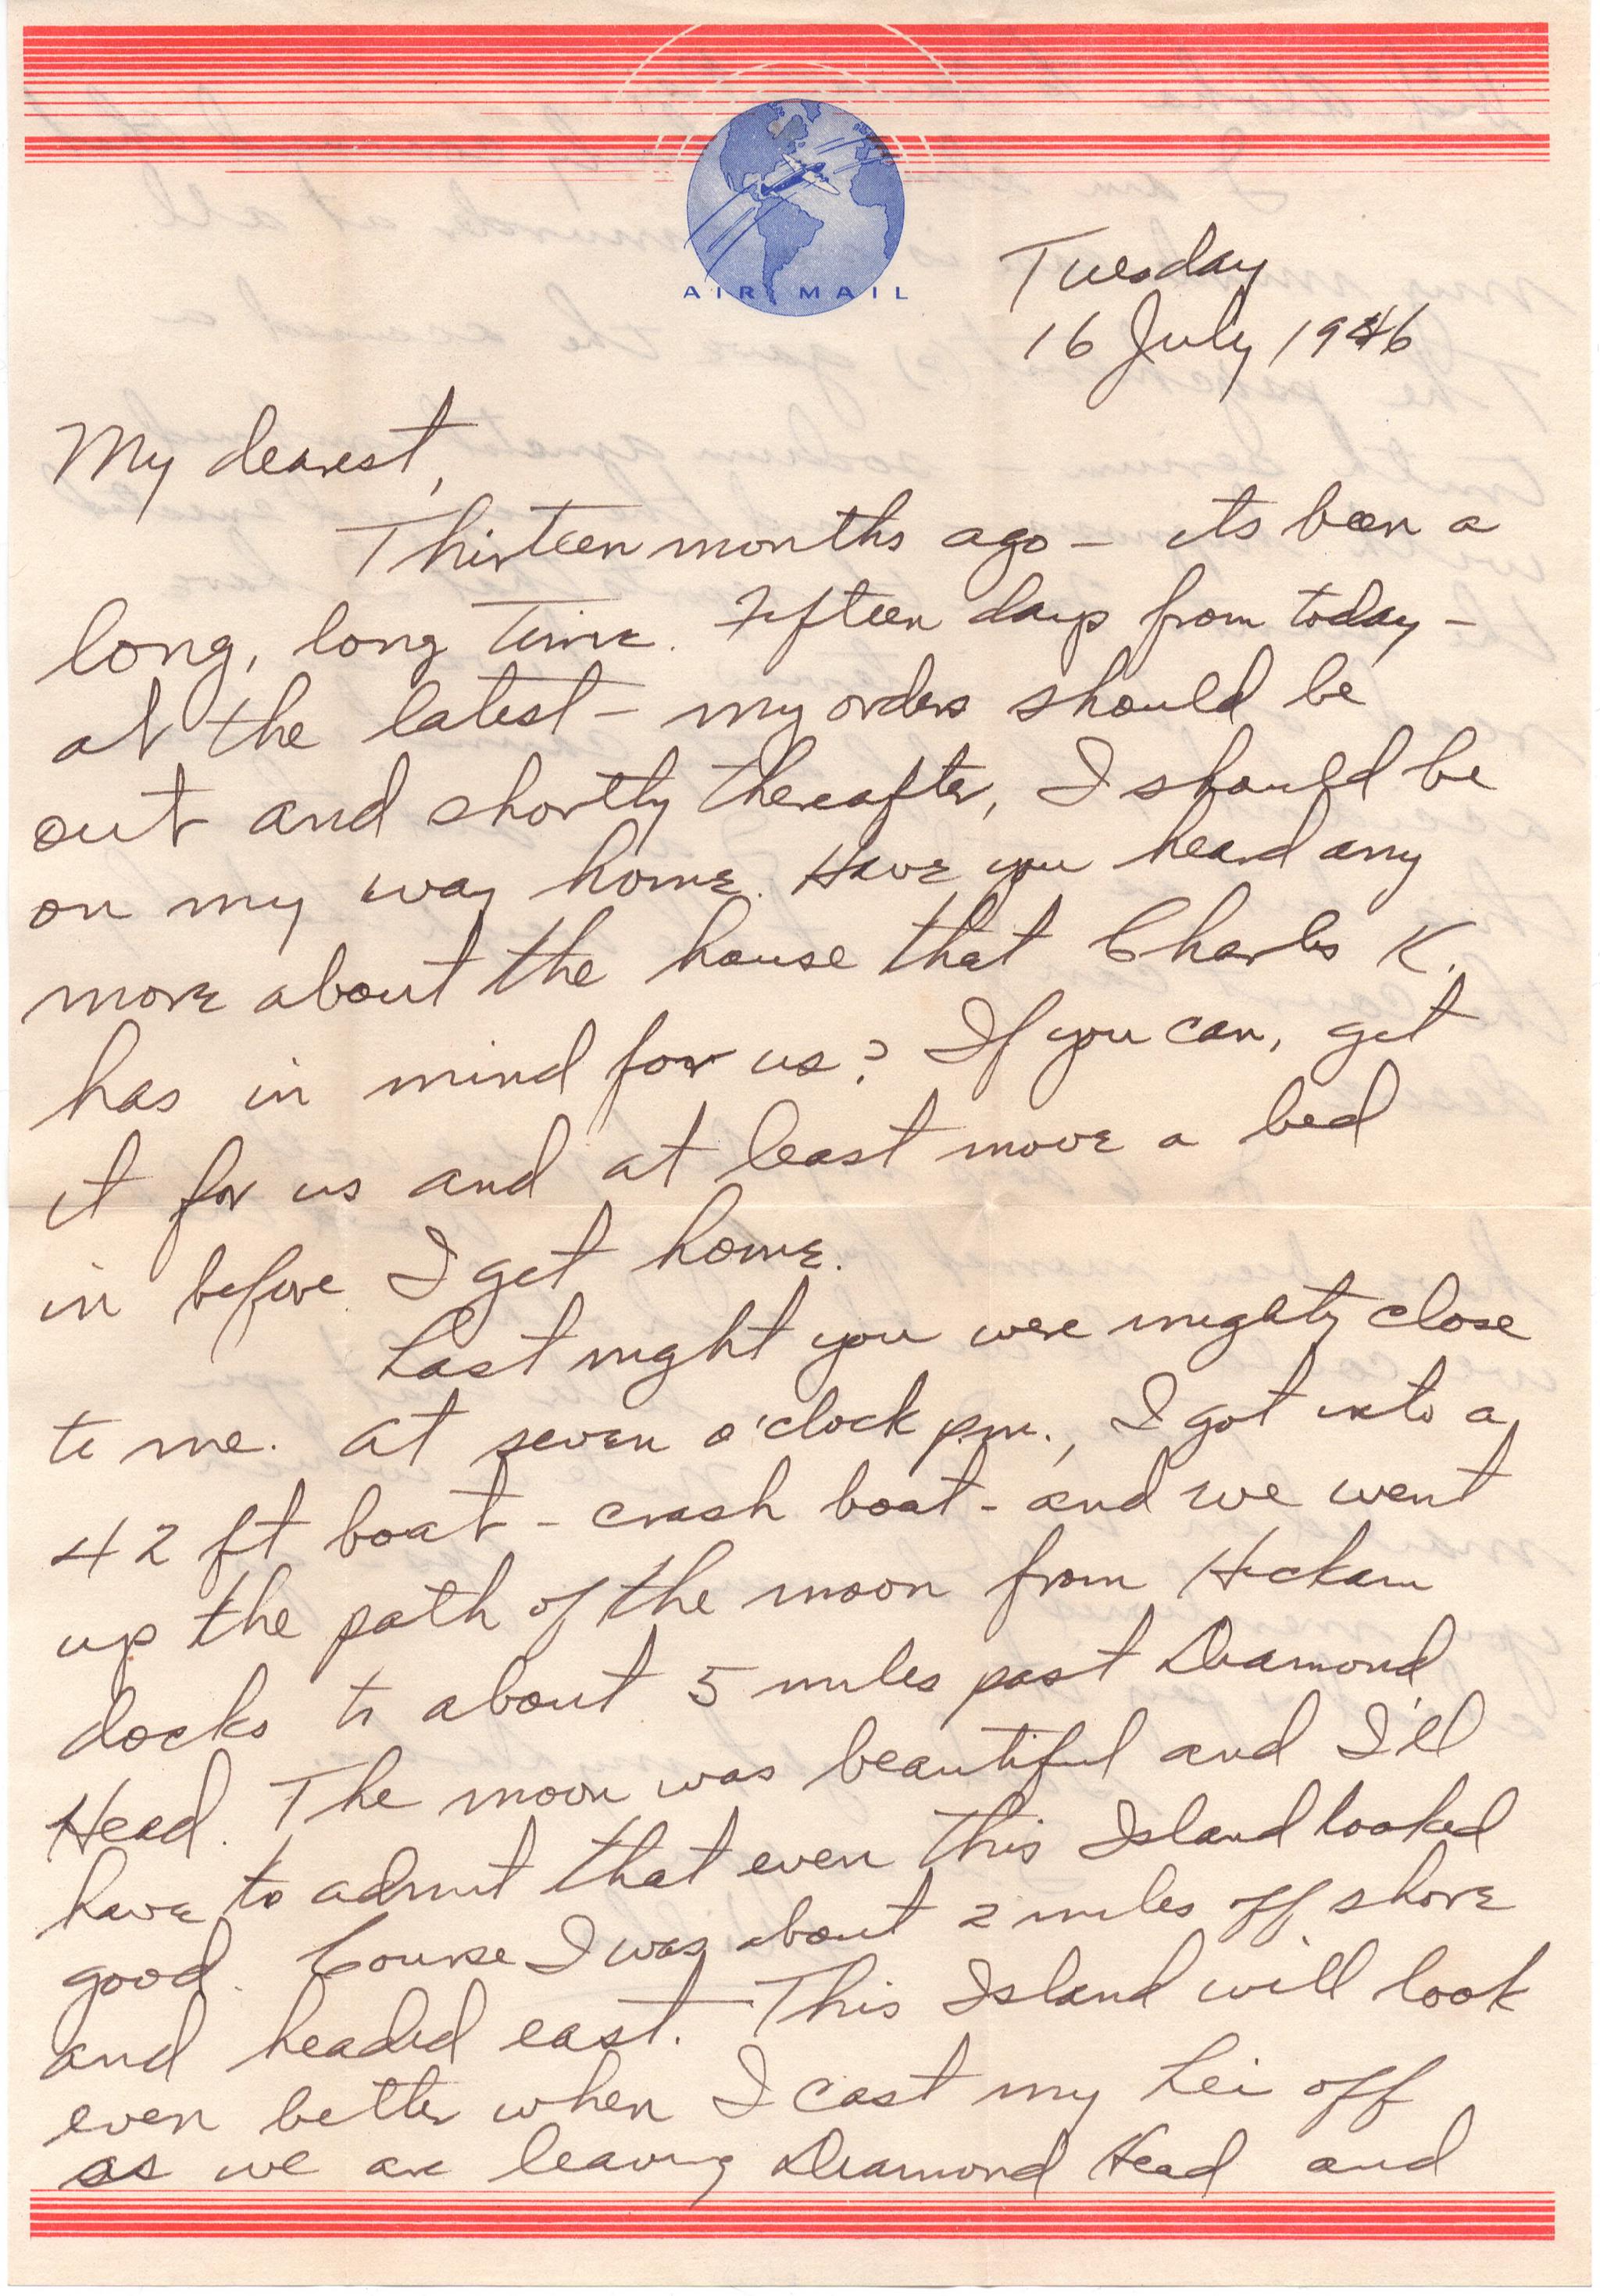 AIR MAIL
Tuesday
16 July 1946
My dearest,
Thirteen months ago — its been a
long, long time. Fifteen days from today -
at the latest - my orders should be
out and shortly thereafter, I should be
on my way home. Have you heard any
more about the house that Charles K.
has in mind for us? If you can, get
it for us and at least move a bed
in before I get home.
Last night you were mighty close
to me. At seven o'clock p.m., I got into a
42 ft boat - crash boat - and we went
up the path of the moon from Hickam
docks to about 5 miles past Diamond
Head. The moon was beautiful and I'll
have to admit that even this Island looked
good. Course I was about 2 miles off shore
and headed east. This Island will look
even better when I cast my Lei off
as we are leaving Diamond Head and